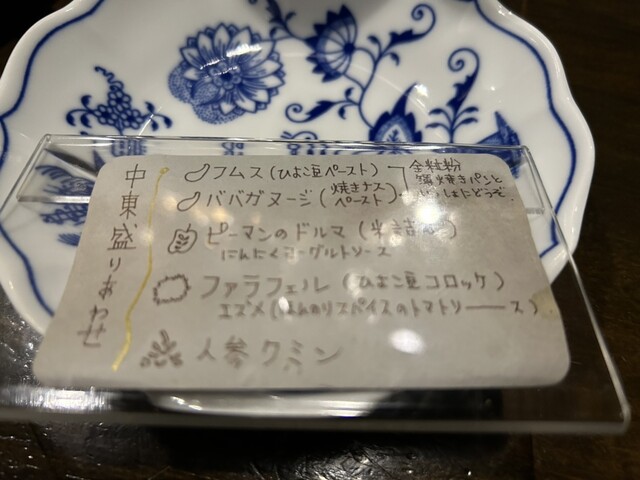 中東盛りあわせ
フムス(ひよこ豆ペースト)
ババガヌージ(焼きナスペースト)
全粒粉
鍋焼きパンと
いっしょにどうぞ。
ピーマンのドルマ(米詰め)
にんにくヨーグルトソース
ファラフェル(ひよこ豆コロッケ)
エズメ(ほんのりスパイスのトマトソース)
人参クミン